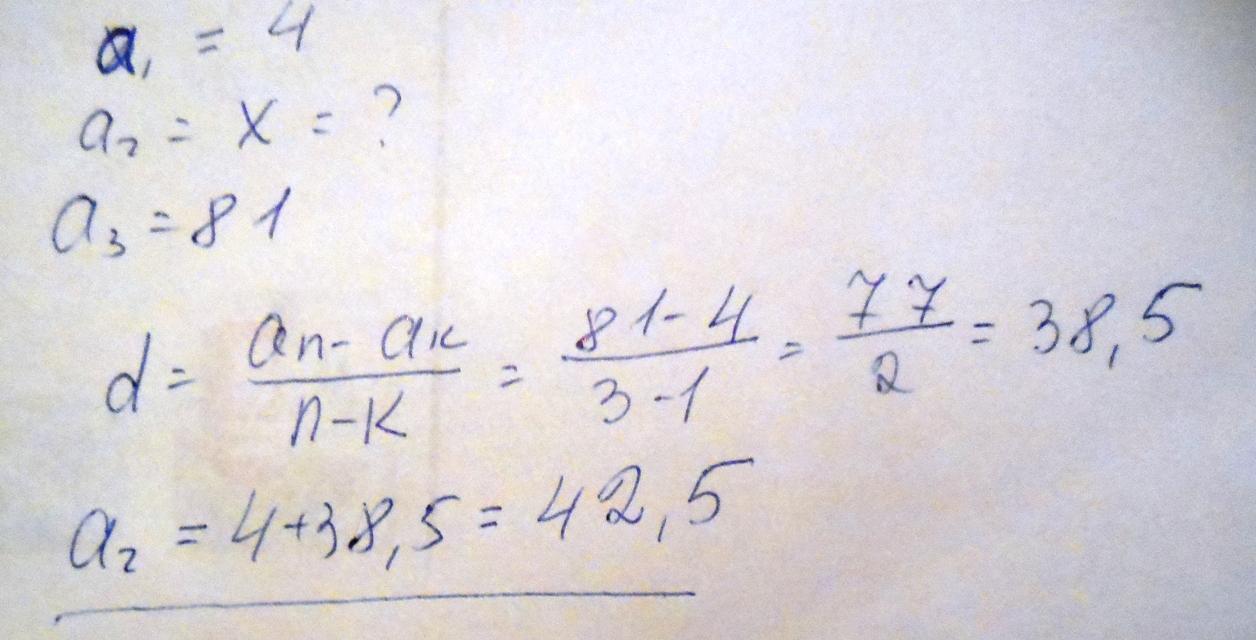 a₁ = 4
a₂ = x = ?
a₃ = 81
d = (aₙ - aₖ)/(n - k) = (81 - 4)/(3 - 1) = 77/2 = 38,5
a₂ = 4 + 38,5 = 42,5